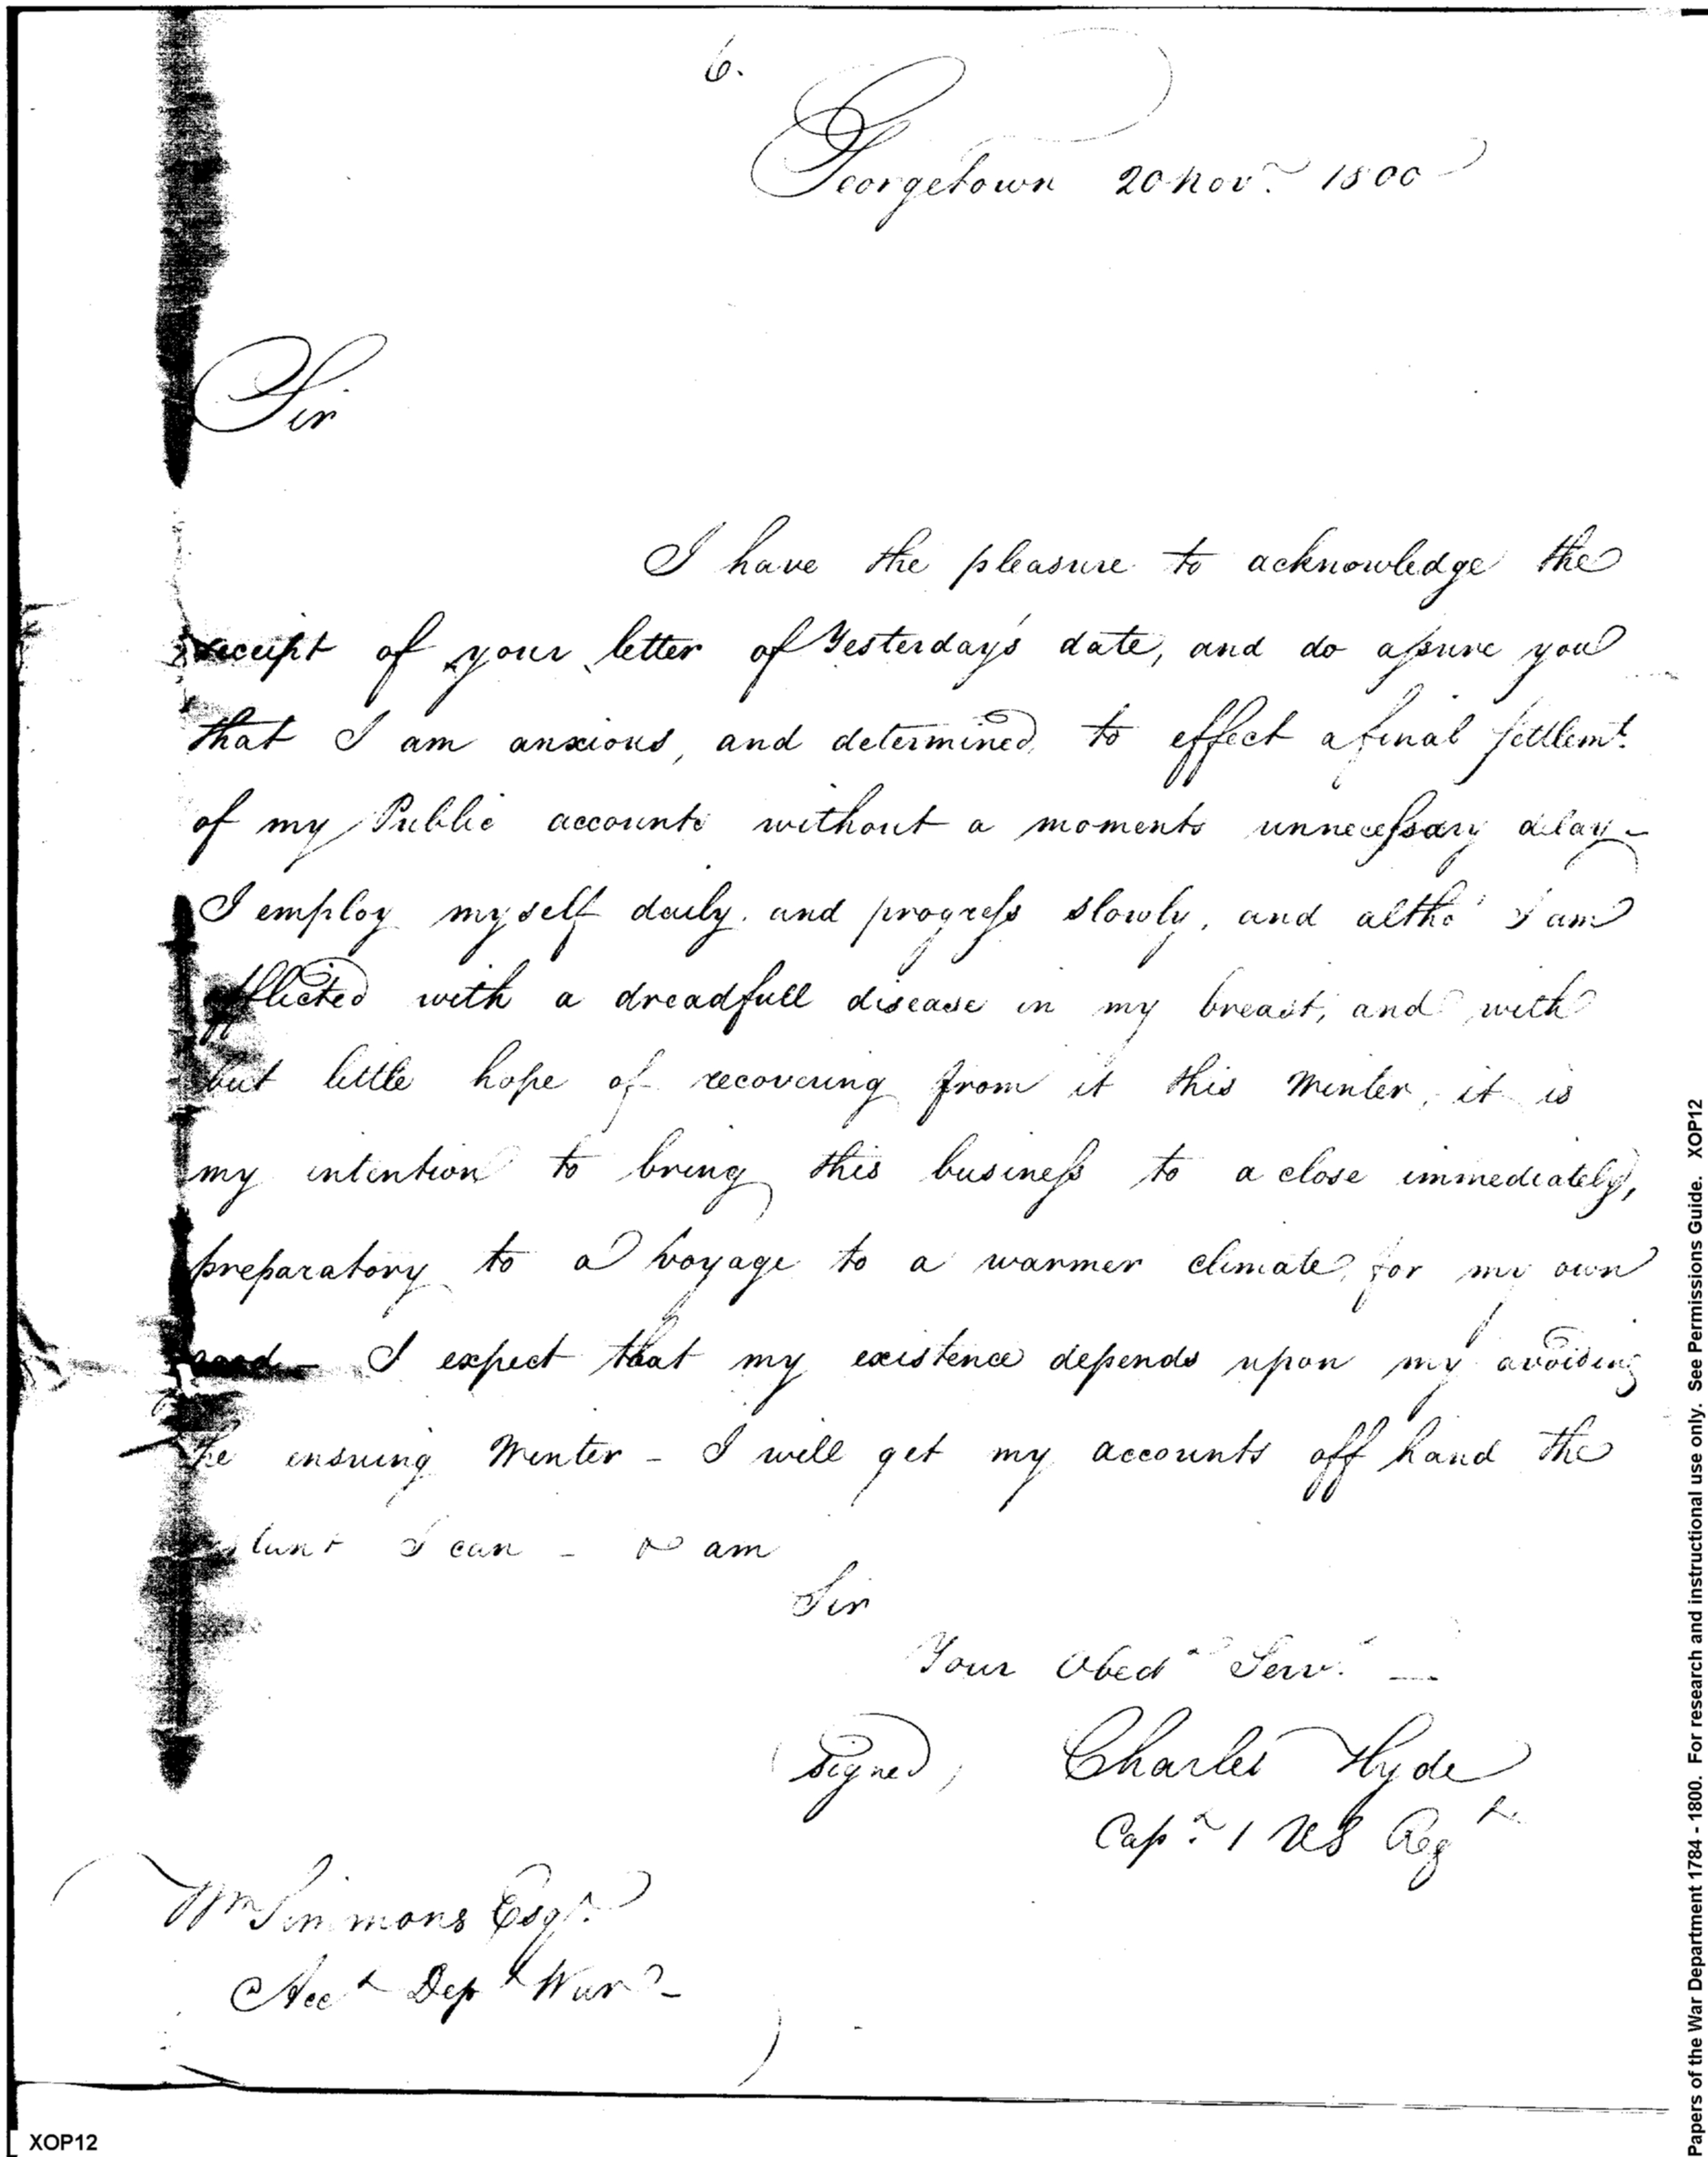 6.
Georgetown 20 Novr. 1800
Sir
I have the pleasure to acknowledge the
receipt of your letter of Yesterday's date, and do assure you
that I am anxious, and determined, to effect a final settlemt.
of my Public accounts without a moments unnecessary delay -
I employ myself daily. and progress slowly, and altho' I am
afflicted with a dreadfull disease in my breast, and with
but little hope of recovering from it this Winter, it is
my intention to bring this business to a close immediately,
preparatory to a voyage to a warmer climate, for my own
I expect that my existence depends upon my avoiding
the ensuing Winter - I will get my accounts off hand the
I can - am
Sir
Your Obedt Servt. —
signed, Charles Hyde
Capt. 1 US Regt
Wm Simmons Esqr.
Acct Dept War -
XOP12
Papers of the War Department 1784 - 1800. For research and instructional use only. See Permissions Guide. XOP12